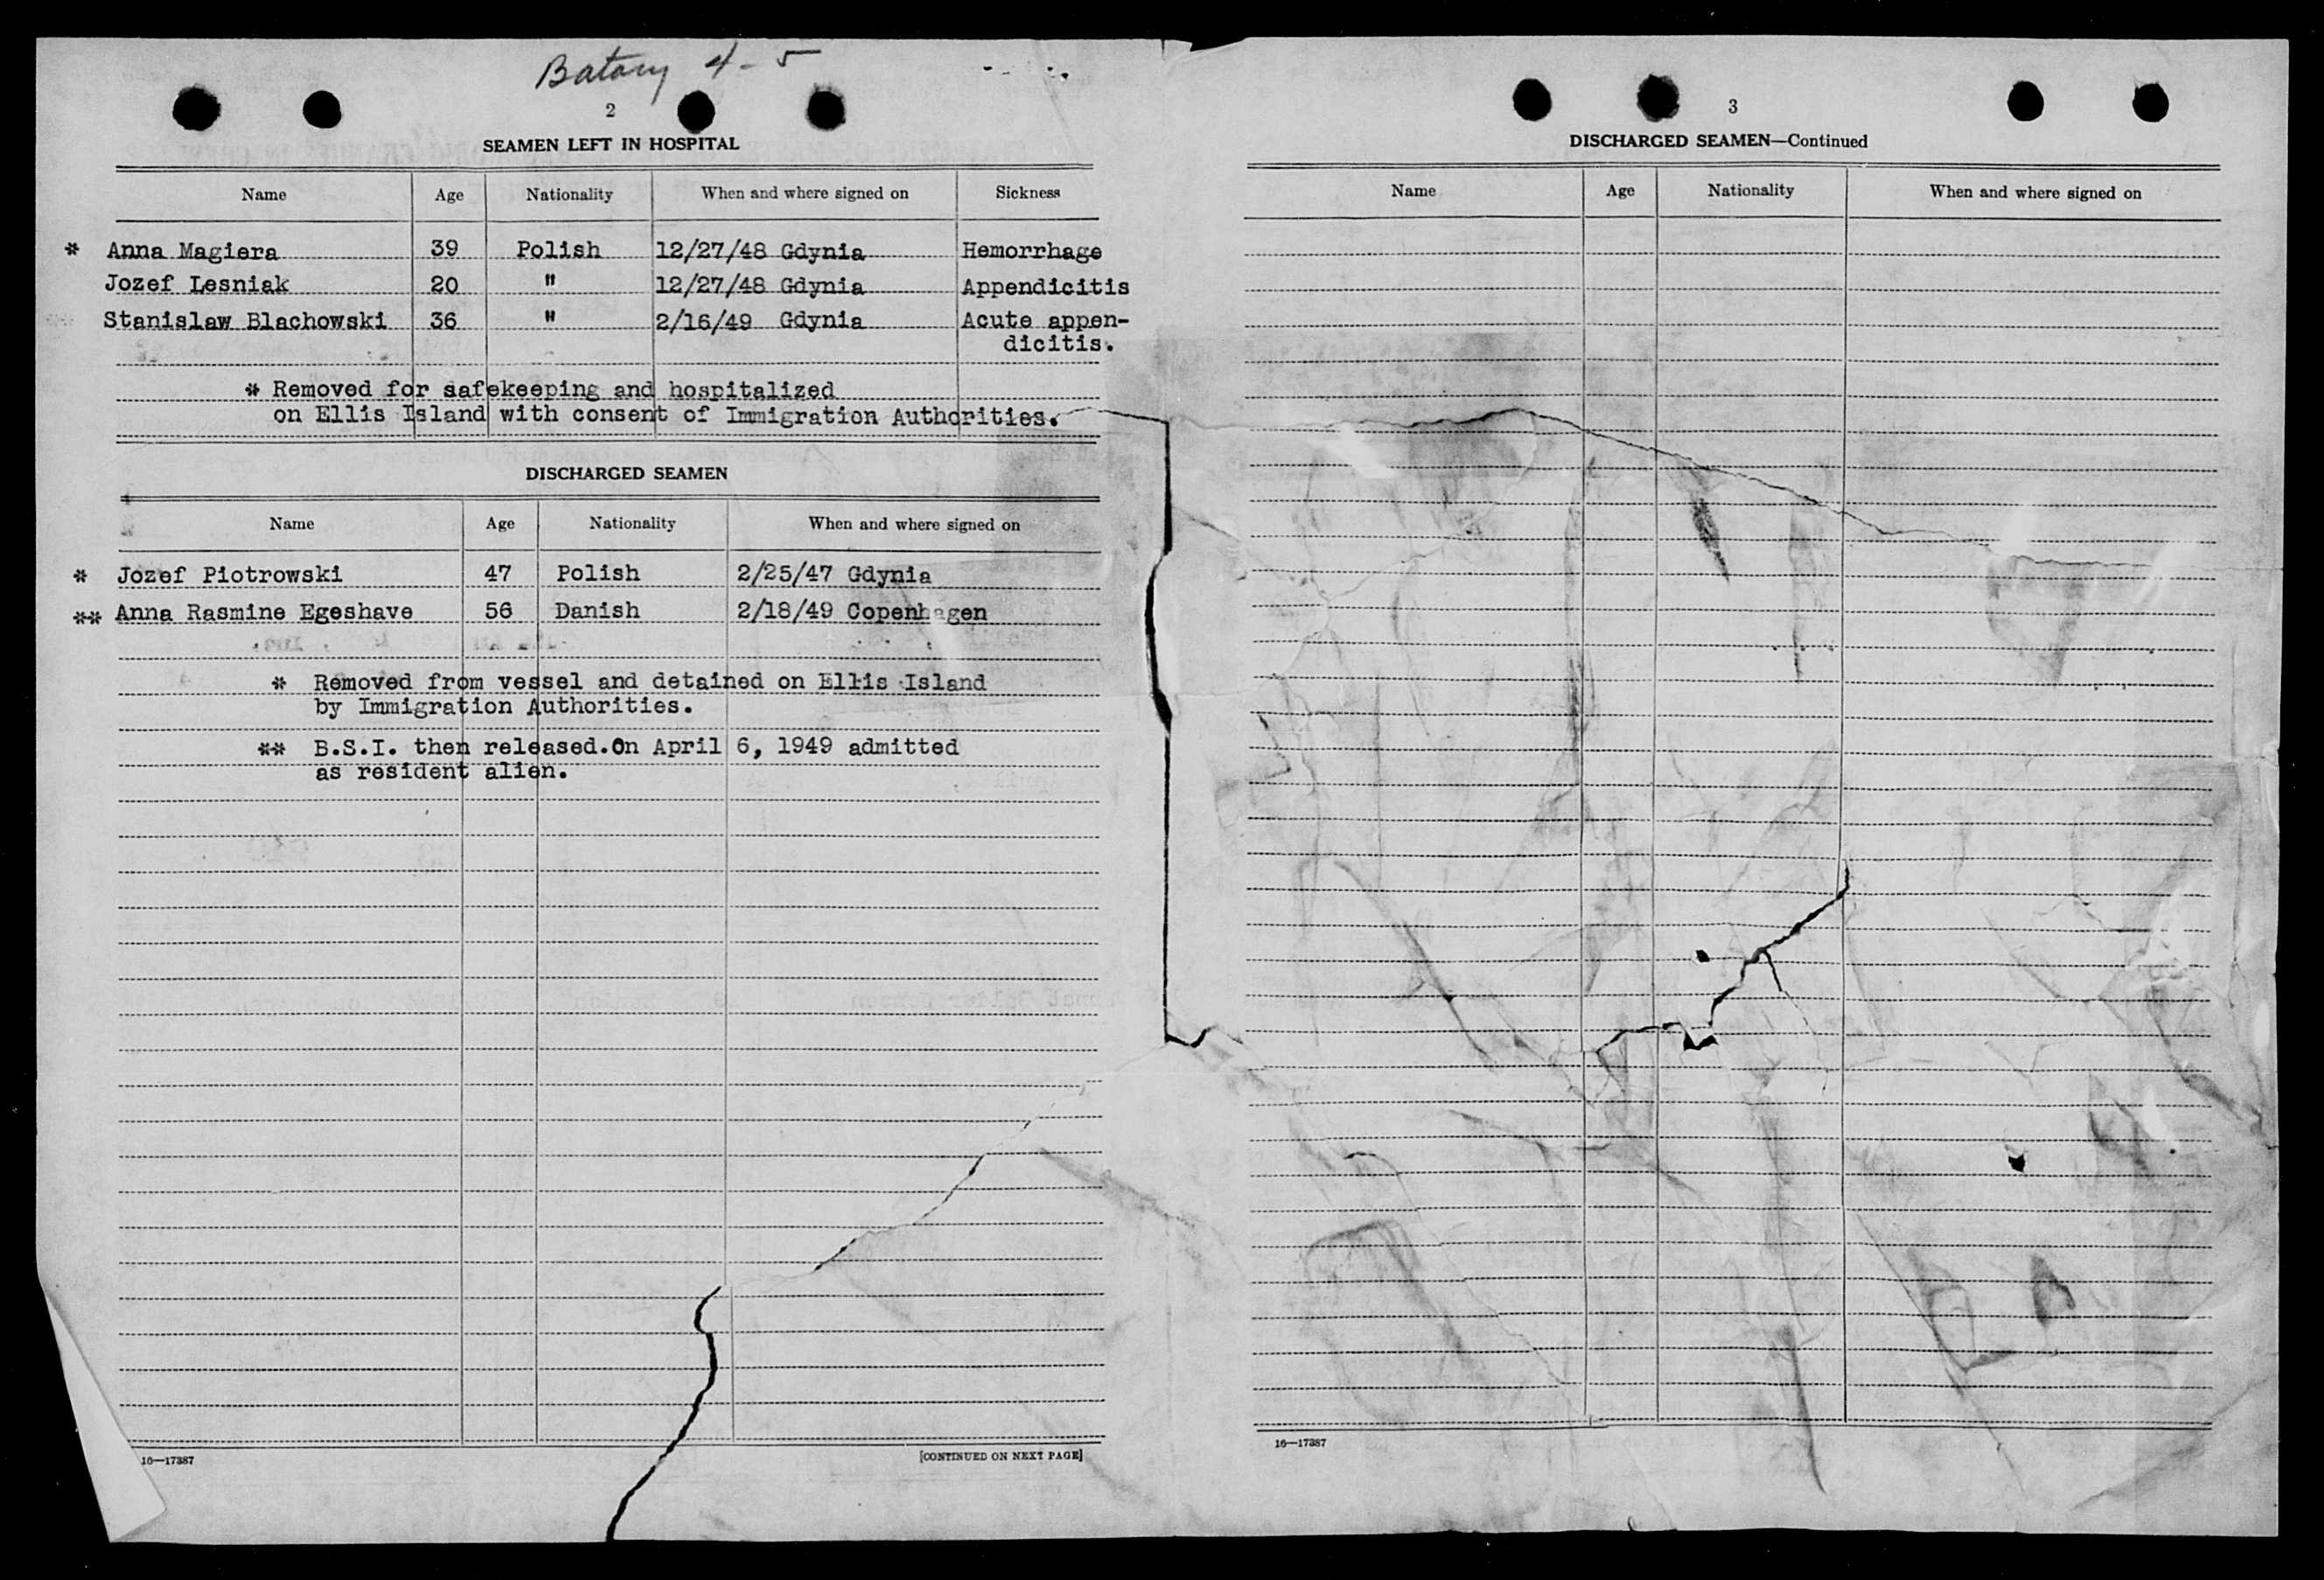 Batory 4-5
2
SEAMEN LEFT IN HOSPITAL
Name Age Nationality When and where signed on Sickness
* Anna Magiera 39 Polish 12/27/48 Gdynia Hemorrhage
Jozef Lesniak 20 " 12/27/48 Gdynia Appendicitis
Stanislaw Blachowski 36 " 2/16/49 Gdynia Acute appen-
dicitis.
* Removed for safekeeping and hospitalized
on Ellis Island with consent of Immigration Authorities.
DISCHARGED SEAMEN
Name Age Nationality When and where signed on
* Jozef Piotrowski 47 Polish 2/25/47 Gdynia
** Anna Rasmine Egeshave 56 Danish 2/18/49 Copenhagen
* Removed from vessel and detained on Ellis Island
by Immigration Authorities.
** B.S.I. then released.On April 6, 1949 admitted
as resident alien.
16—17387 [CONTINUED ON NEXT PAGE]
3
DISCHARGED SEAMEN—Continued
Name Age Nationality When and where signed on
16—17387